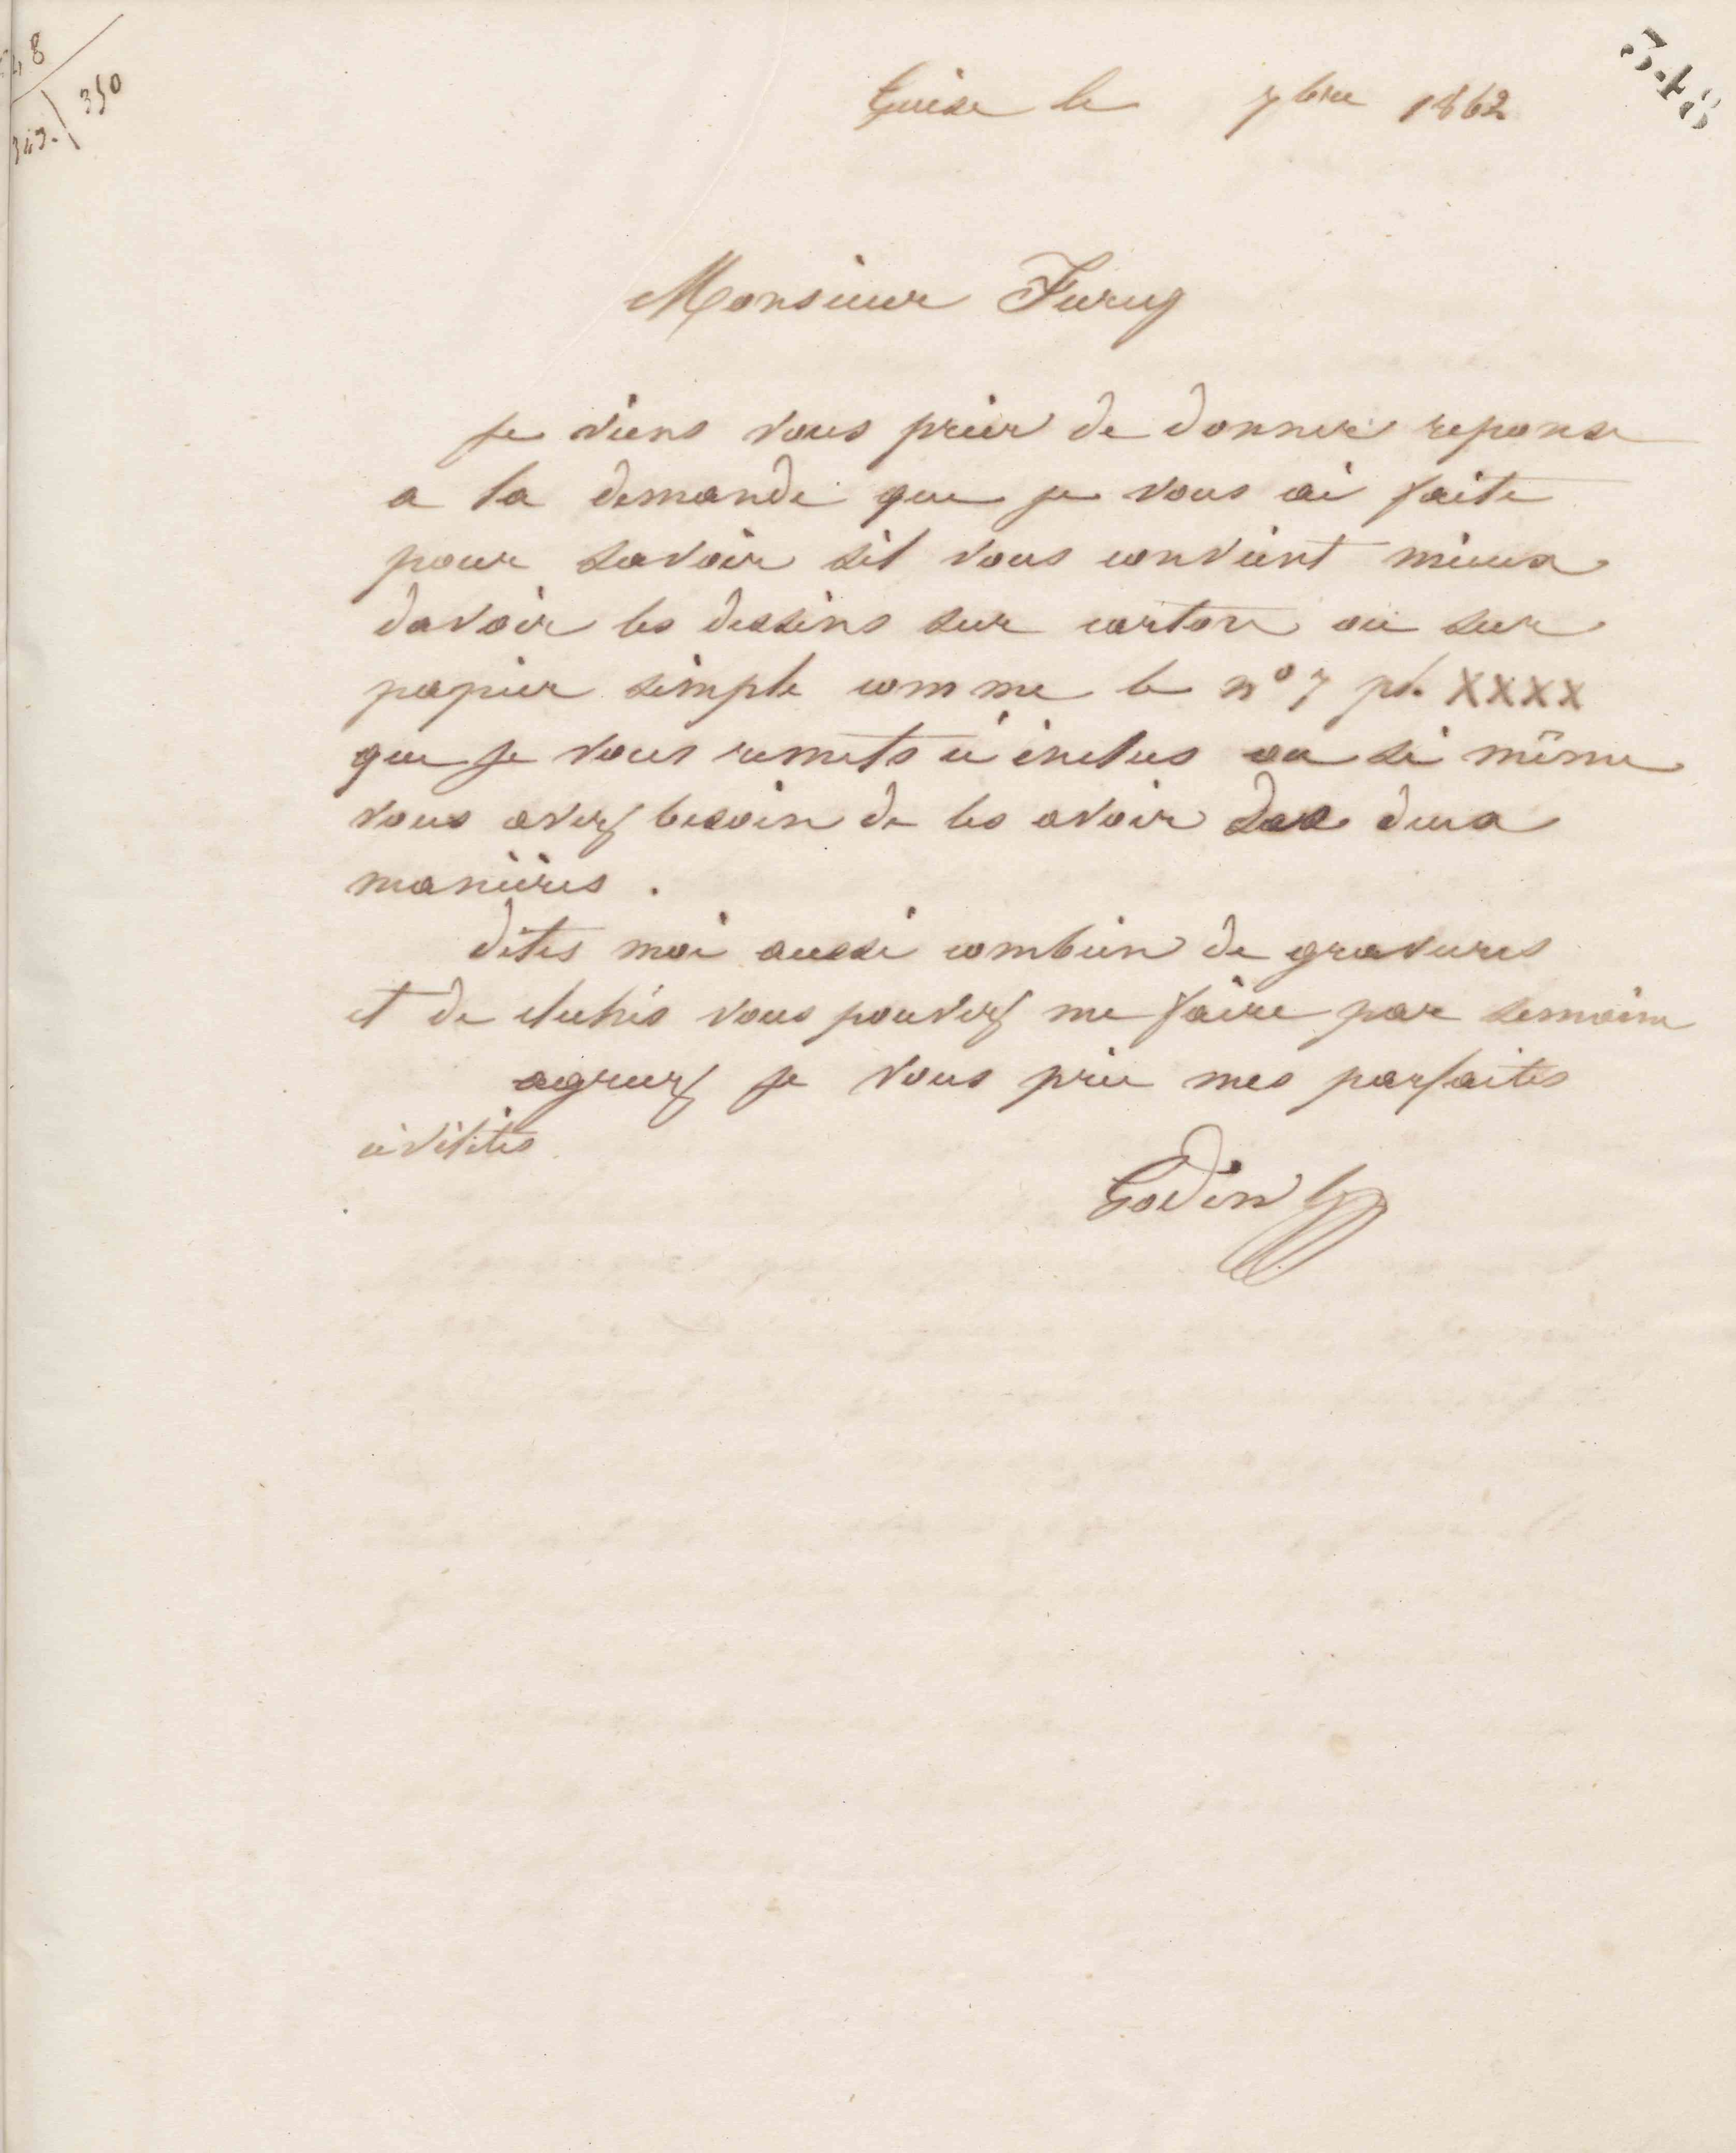 348
349. 350
348
Guise le 7bre 1862
Monsieur Fury
je viens vous prier de donner reponse
a la demande que je vous ai faite
pour savoir sil vous convient mieux
davoir les dessins sur carton ou sur
papier simple comme le n° 7 pl. XXXX
que je vous remets ci inclus ou si même
vous avez besoin de les avoir des deux
manières.
dites moi aussi combien de gravures
et de clichés vous pouvez me faire par semaine
agreez je vous prie mes parfaites
civilités
Godin